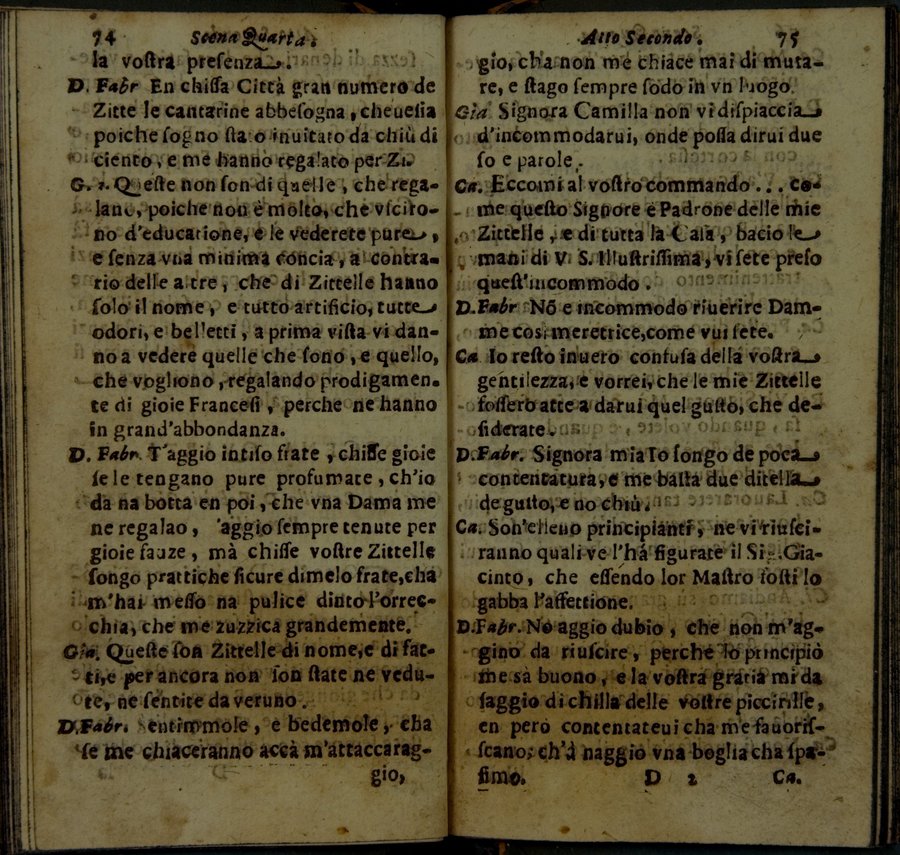 74 Scena Quarta.
la vostra presenza.
D. Fabr En chissa Città gran numero de
Zitte le cantarine abbesogna, cheuesia
poiche sogno stato inuitato da chiù di
ciento, e me hanno regalato per Zi.
G. Queste non son di quelle, che rega-
lano, poiche non è molto, che vscito-
no d'educatione, e le vederete pure,
e senza vna minima concia, a contra-
rio delle altre, che di Zittelle hanno
solo il nome, e tutto artificio, tutte
odori, e belletti, a prima vista vi dan-
no a vedere quelle che sono, e quello,
che vogliono, regalando prodigamen-
te di gioie Francesi, perche ne hanno
in grand'abbondanza.
D. Fabr. T'aggio intiso frate, chisse gioie
se le tengano pure profumate, ch'io
da na botta en poi, che vna Dama me
ne regalao, aggio sempre tenute per
gioie fauze, mà chisse vostre Zittelle
songo prattiche sicure dimelo frate, cha
m'hai messo na pulice dinto l'orrec-
chia, che me zuzzica grandemente.
Gia. Queste son Zittelle di nome, e di fat-
ti, e per ancora non son state ne vedu-
te, ne sentite da veruno.
D. Fabr. entimmole, e bedemole, cha
se me chiaceranno accà m'attaccarag-
gio,
Atto Secondo. 75
gio, cha non me chiace mai di muta-
re, e stago sempre sodo in vn luogo.
Gia Signora Camilla non vi dispiaccia
d'incommodarui, onde possa dirui due
so e parole.
Ca. Eccomi al vostro commando ... co-
me questo Signore è Padrone delle mie
Zittelle, e di tutta la Casa, bacio le
mani di V. S. Illustrissima, vi sete preso
quest'incommodo.
D. Fabr Nō e incommodo riuerire Dam-
me cosi meretrice, come vui sete.
Ca Io resto inuero confusa della vostra
gentilezza, e vorrei, che le mie Zittelle
fossero atte a darui quel gusto, che de-
siderate.
D. Fabr. Signora mia Io songo de poca
contentatura, e me basta due ditella
de gusto, e no chiù.
Ca. Son'elleno principianti, ne vi riusci-
ranno quali ve l'hà figurate il Sig. Gia-
cinto, che essendo lor Mastro forsi lo
gabba l'affettione.
D. Fabr. No aggio dubio, che non m'ag-
gino da riuscire, perche Io principiò
me sà buono, e la vostra gratia mi da
saggio di chilla delle vostre piccirille,
en però contentateui cha me fauoris-
scano, ch'à naggio vna boglia cha spa-
simo. D 2 Ca.